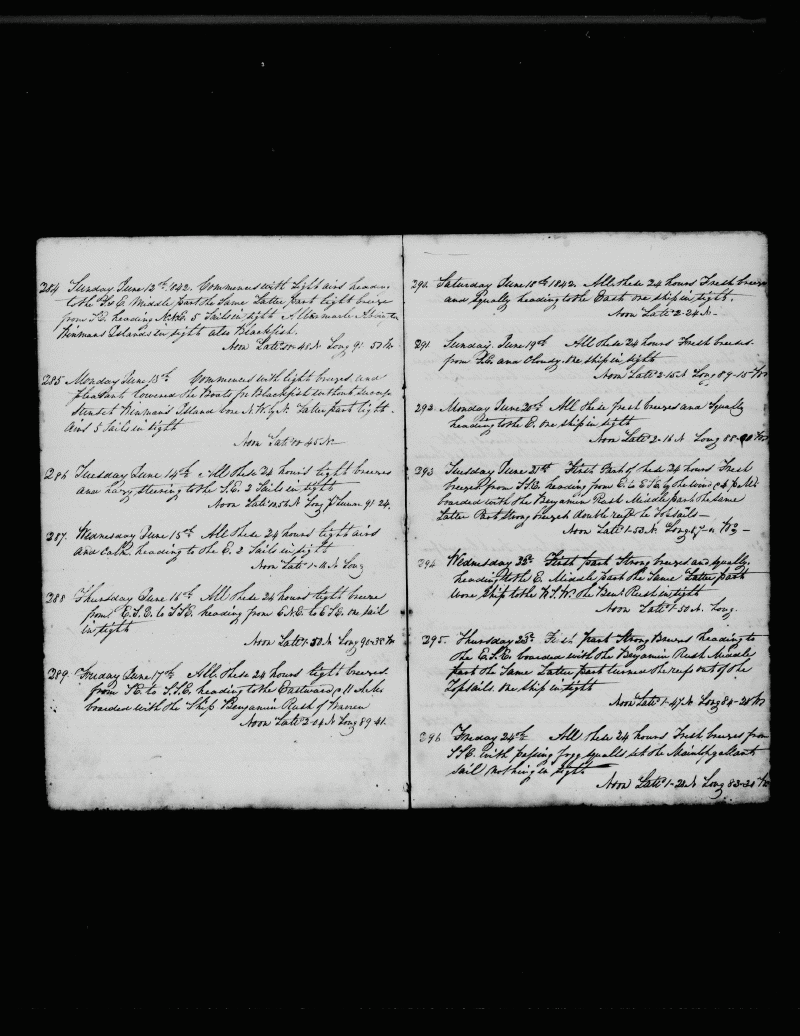 284 Sunday June 12th 1842. Commences with light airs heading
to the S & E Middle part the Same Latter part light breeze
from S.E. heading 5 Sails in sight Albemarle
Wenmans Islands in sight also Blackfish.
Noon Latd 00-48 N Long 91 50 W
285 Monday June 13th Commences with light breezes and
pleasant lowered the Boats for Blackfish without success
Sunset Wenmans Island bore N.W by N. Latter part light
airs 5 Sails in sight
Noon Latd 00 45 N
286 Tuesday June 14th All these 24 hours light breezes
and hazy steering to the S.E. 2 Sails in sight
Noon Latd 00.56 N Long 91 24.
287. Wednesday June 15th All these 24 hours light airs
and Calm heading to the E. 2 Sails in sight
Noon Latd 1-11 N Long
288 Thursday June 16th All these 24 hours light breeze
from E.S.E. to S.S.E. heading from E.N.E. to E.S.E. one sail
in sight
Noon Latd 1-50 N Long 90-38 W
289. Friday June 17th All these 24 hours light breezes
from S.E. to S.S.E. heading to the Eastward at 11 A.M.
boarded with the Ship Benjamin Rush of Warren
Noon Latd 2-04 N Long 89 41.
290. Saturday June 18th 1842. All these 24 hours Fresh breezes
and squally heading to the East one ship in sight.
Noon Latd 2-24 N
291 Sunday. June 19th All these 24 hours Fresh breezes
from S.E. and Cloudy. One ship in sight
Noon Latd 2-15 N Long 89-15 W
292. Monday June 20th All these Fresh breezes and Squally
heading to the E. one ship in sight
Noon Latd 2-16 N Long 88-40 W
293 Tuesday June 21st First Part of these 24 hours Fresh
breezes from S.S.E. heading from E. to E S E by the wind 6 P.M.
boarded with the Benjamin Rush Middle part the same
Latter Part strong breezes double reef the Topsails
Noon Latd 1-53 N. Long W
294 Wednesday 22d First part Strong breezes and squally.
heading to the E. Middle part the Same Latter part
wore ship to the W.S.W. the Benj Rush in sight
Noon Latd 1-50 N. Long.
295. Thursday 23d First part Strong Breezes heading to
the E.S.E. boarded with the Benjamin Rush Middle
part the Same Latter part turned the reefs out of the
Topsails one ship in sight
Noon Latd 1-47 N Long 84-28 W
296 Friday 24th All these 24 hours Fresh breezes from
S.S.E. with passing fogg squalls set the Maintopgallant
sail nothing in sight
Noon Latd 1-24 N Long 83-30 W